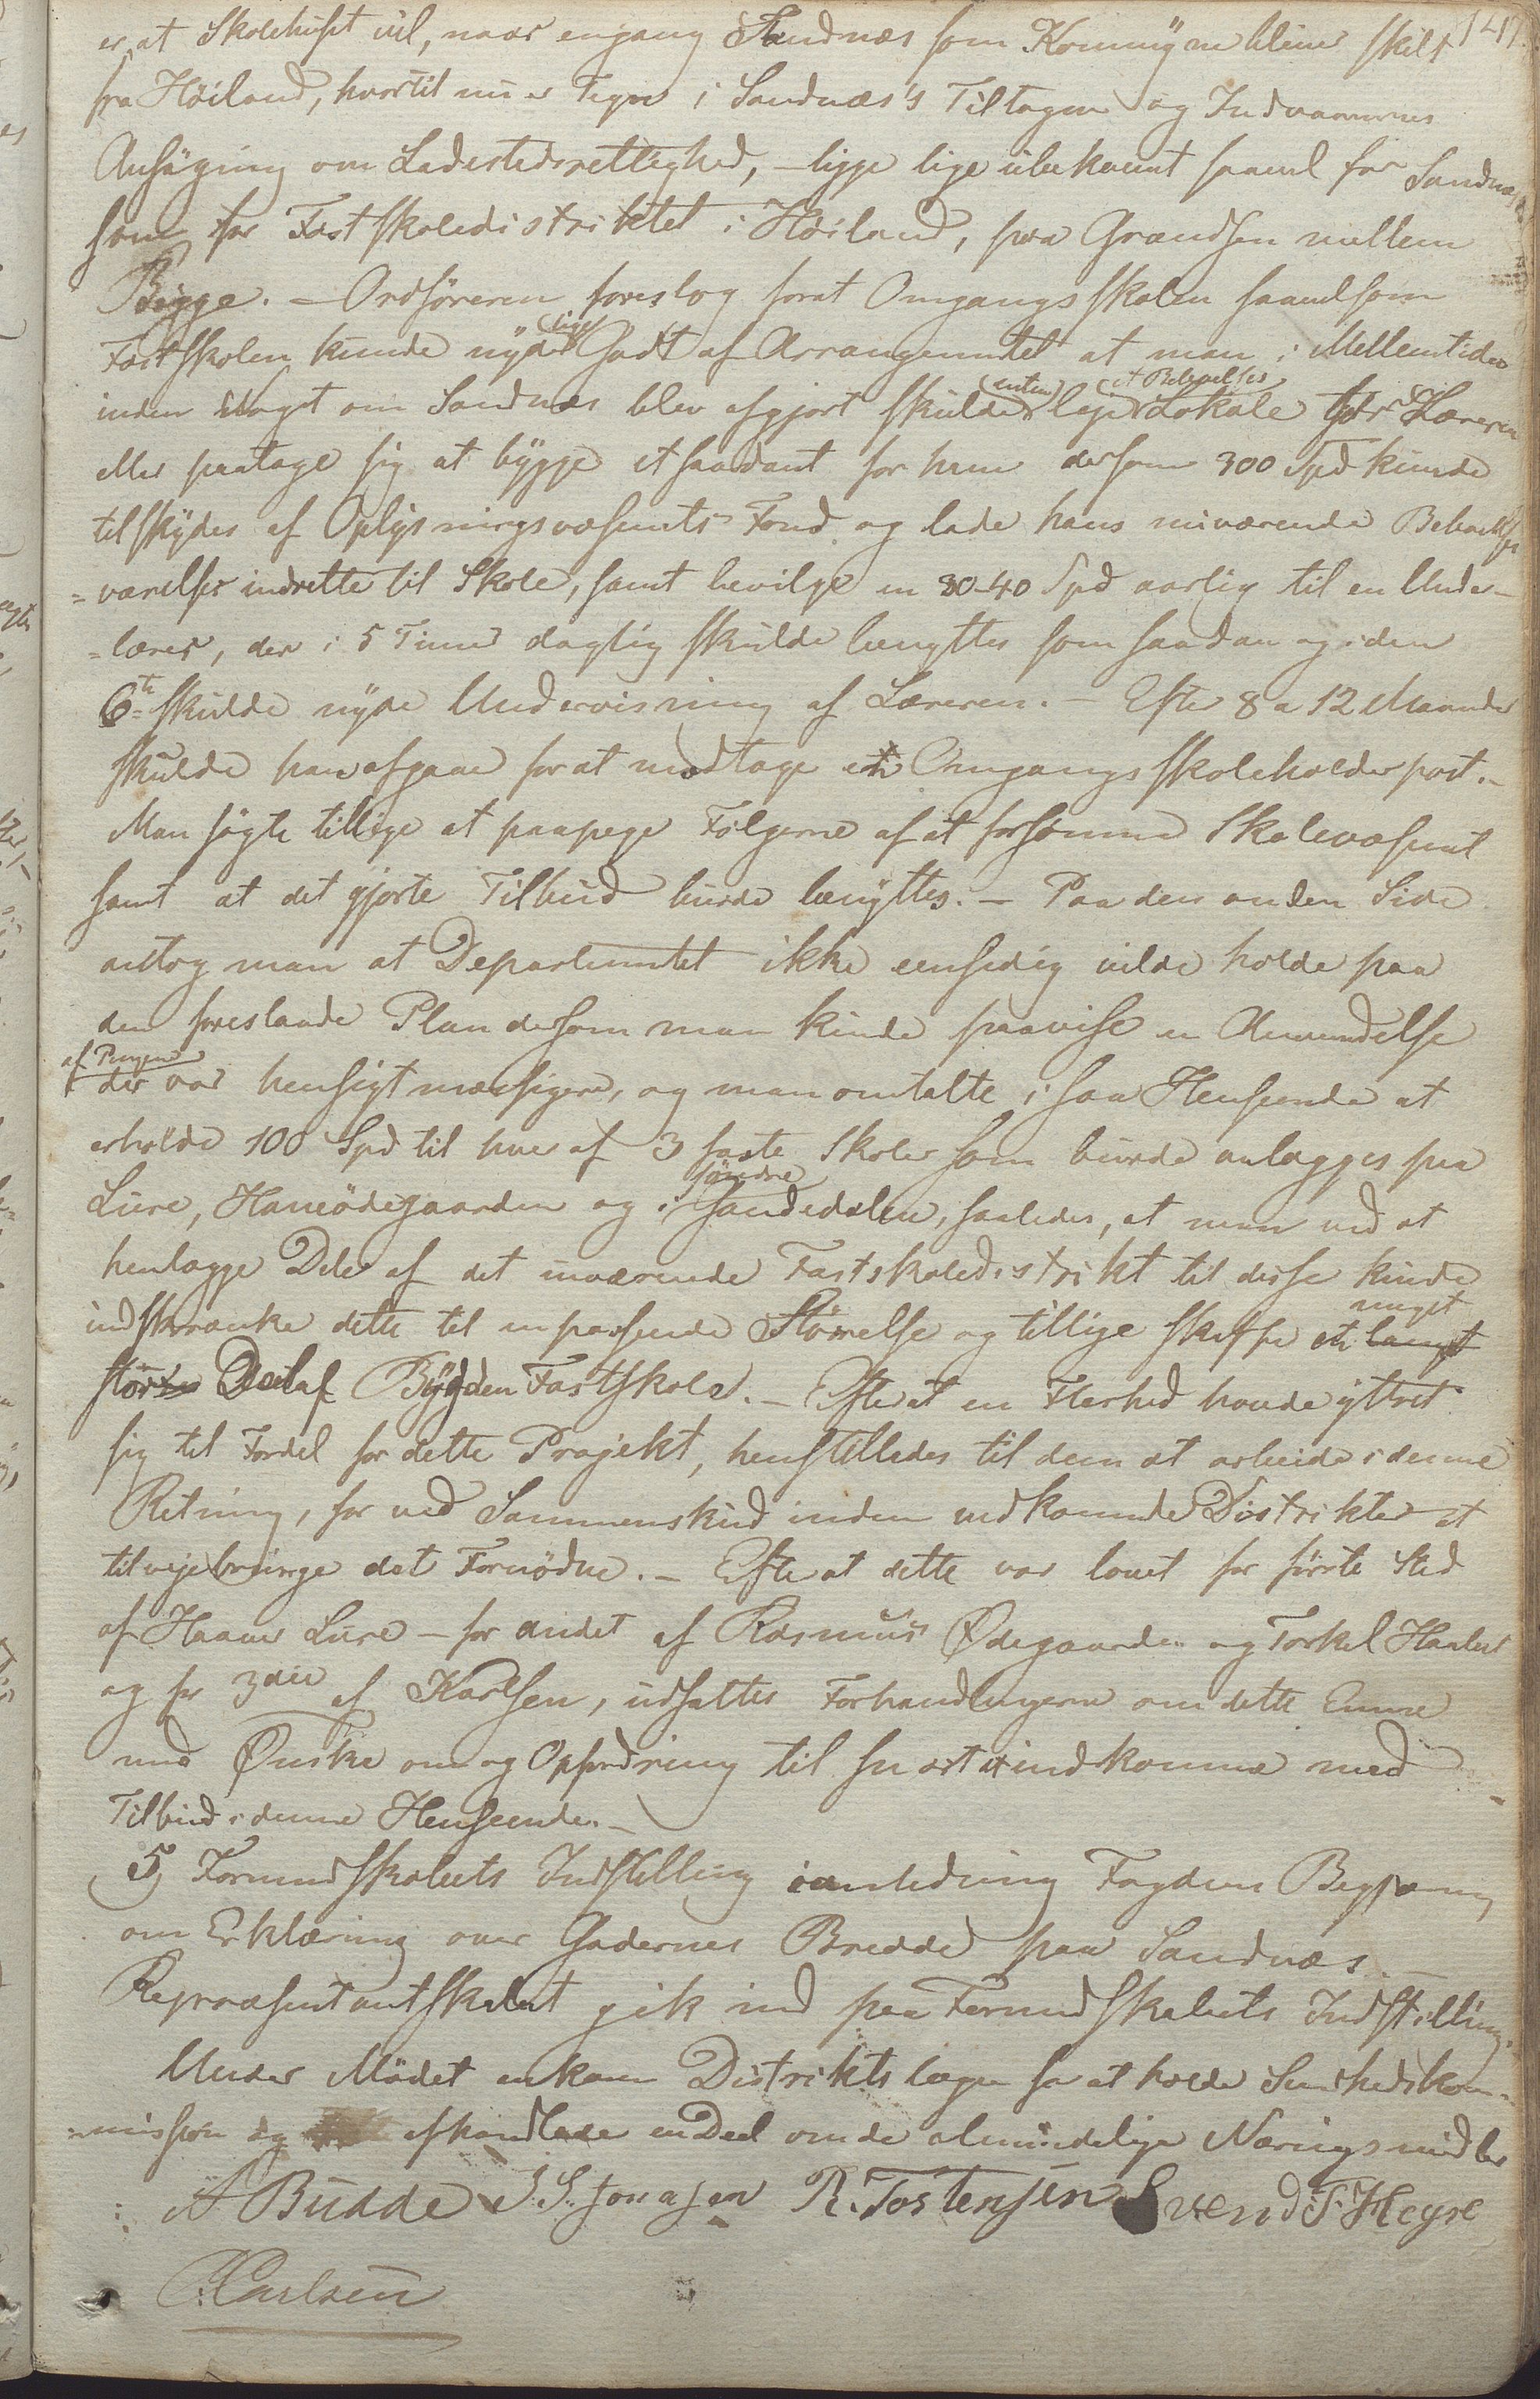 147.
er, at Skolehuset vil, naar engang Sandnæs som Kommune bliver skilt
fra Höiland, hvortil nu er Tegn i Sandnæs's Tiltagen og Indvaanernes
Ansögning om Ladestedsrettighed, - ligge lige ubekvemt saavel for Sandnæs
som for Fastskoledistriktet i Höiland, paa Grændsen mellem
Begge. - Ordföreren foreslog forat Omgangsskolen saavelsom
Fastskolen kunde nyde lige Godt af Arrangementet at man i Mellemtiden
inden Slaget om Sandnæs blev afgjort skulde enten leje et Beboelses Lokale for Læreren
eller paatage sig at bygge et saadant for ham dersom 300 Spd kunde
tilskydes af Oplysningsvæsenets Fond og lade hans nuværende Beboelses
=værelser indrette til Skole, samt bevilge en 30-40 Spd aarlig til en Under-
=lærer, der i 5 Timer daglig skulde benyttes som saadan og i den
6te skulde nyde Undervisning af Læreren. - Efter 8 a 12 Maaneder
skulde han afgaae for at modtage en Omgangsskoleholderpost. -
Man sögte tillige at paapege Fölgerne af at forsömme Skolevæsenet
samt at det gjorte Tilbud burde benyttes. - Paa den anden Side
antog man at Departementet ikke eensidig vilde holde paa
den foreslaaede Plan dersom man kunde paavise en Anvendelse
af Pengene der var hensigtmæssigere, og man omtalte i saa Henseende at
erholde 100 Spd til hver af 3 faste Skoler som burde anlægges paa
Lure, Haneödegaarden og i söndre Sandedalen, saaledes, at man ved at
henlægge Dele af det nuværende Fastskoledistrikt til disse kunde
indskrænke dette til en passende Störrelse og tillige skaffe en langt meget
större Deel af Bygden Fastskole. - Efterat en Fleerhed havde yttret
sig til Fordel for dette Projekt, henstilledes til dem at arbeide i denne
Retning, for ved Sammenskud inden vedkommende Distrikter at
tilvejebringe det Fornödne. - Efterat dette var lovet for förste Sted
af Haaver Lure - for andet af Rasmus Ødegaarden og Torkel Hanbed
og for 3die af Karlsen, udsattes Forhandlingerne om dette Emne
med Ønske om og Opfordring til snart at indkomme med
Tilbud i denne Henseende. -
5) Formandskabets Indstilling i anledning Fogdens Begjæring
om Erklæring over Gadernes Bredde paa Sandnæs. -
Repræsentantskabet gik ind paa Formandskabets Indstilling.
Under Mödet ankom Distriktslægen for at holde Sundhedskom-
=mission og afhandlede en Deel om de almindelige Næringsmidler
A Budde J. S. Jonasen R. Tostensen Svend T. Høyre
Carlsen